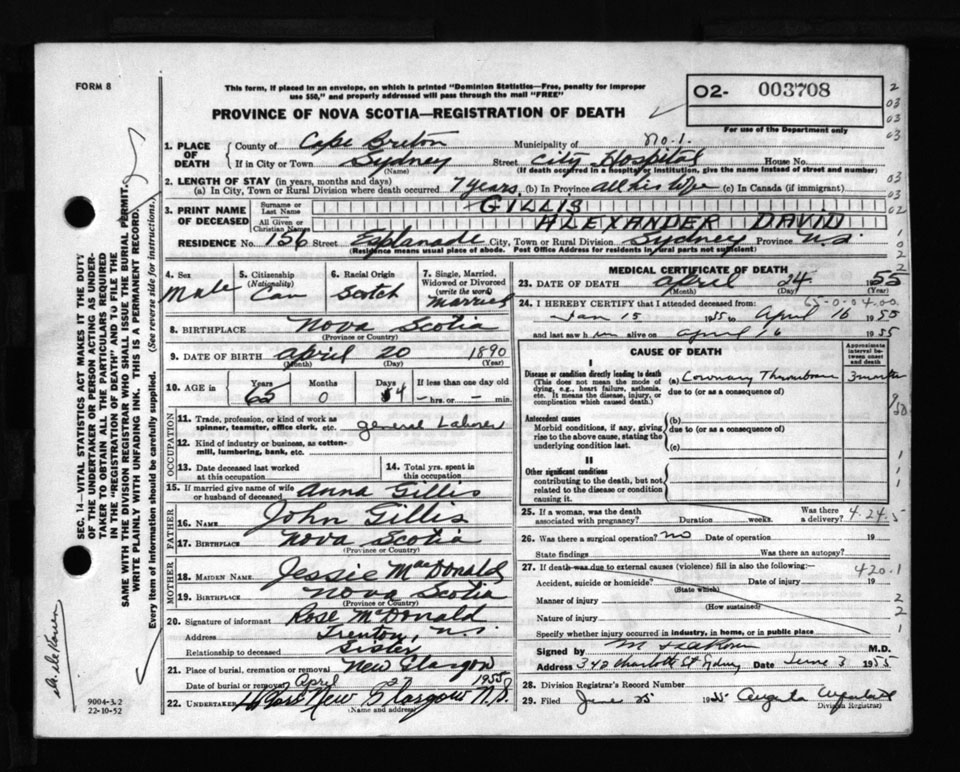 FORM 8
This form, if placed in an envelope, on which is printed "Dominion Statistics—Free, penalty for improper
use $50," and properly addressed will pass through the mail "FREE"
PROVINCE OF NOVA SCOTIA—REGISTRATION OF DEATH
O2- 003708
For use of the Department only
1. PLACE OF DEATH
County of Cape Breton Municipality of No. 1.
If in City or Town Sydney Street City Hospital House No.
(Name) (If death occurred in a hospital or institution, give the name instead of street and number)
2. LENGTH OF STAY (in years, months and days)
(a) In City, Town or Rural Division where death occurred 7 years (b) In Province all his life (c) In Canada (if immigrant)
3. PRINT NAME OF DECEASED
Surname or Last Name GILLIS
All Given or Christian Names ALEXANDER DAVID
RESIDENCE No. 156 Street Esplanade City, Town or Rural Division Sydney Province N.S.
(Residence means usual place of abode. Post Office Address for residents in rural parts not sufficient)
4. Sex Male
5. Citizenship (Nationality) Can
6. Racial Origin Scotch
7. Single, Married, Widowed or Divorced (write the word) Married
8. BIRTHPLACE Nova Scotia
(Province or Country)
9. DATE OF BIRTH April 20 1890
(Month) (Day) (Year)
10. AGE in Years 65 Months 0 Days 4 If less than one day old
— hrs. or — min.
OCCUPATION
11. Trade, profession, or kind of work as
spinner, teamster, office clerk, etc. general Laborer
12. Kind of industry or business, as cotton-
mill, lumbering, bank, etc.
13. Date deceased last worked
at this occupation
14. Total yrs. spent in
this occupation
15. If married give name of wife
or husband of deceased Anna Gillis
FATHER
16. Name John Gillis
17. Birthplace Nova Scotia
(Province or Country)
MOTHER
18. Maiden Name Jessie MacDonald
19. Birthplace Nova Scotia
(Province or Country)
20. Signature of informant Rose McDonald
Address Trenton, N.S.
Relationship to deceased Sister
21. Place of burial, cremation or removal New Glasgow
Date of burial or removal April 27 1955
22. Undertaker New Glasgow N.S.
(Name and address)
MEDICAL CERTIFICATE OF DEATH
23. DATE OF DEATH April 24 1955
(Month) (Day)
24. I HEREBY CERTIFY that I attended deceased from:
65-0-04.00
Jan 15 1955 to April 16 1955
and last saw him alive on April 16 1955
CAUSE OF DEATH
Approximate interval between onset and death
I
Disease or condition directly leading to death
(This does not mean the mode of
dying, e.g., heart failure, asthenia,
etc. It means the disease, injury, or
complication which caused death.)
(a) Coronary Thrombosis
due to (or as a consequence of)
3 months
Antecedent causes
Morbid conditions, if any, giving
rise to the above cause, stating the
underlying condition last.
(b)
due to (or as a consequence of)
(c)
II
Other significant conditions
contributing to the death, but not
related to the disease or condition
causing it.
25. If a woman, was the death
associated with pregnancy? Duration weeks. Was there
a delivery? 4.24.5
26. Was there a surgical operation? no Date of operation 19
State findings Was there an autopsy?
27. If death was due to external causes (violence) fill in also the following:—
420.1
Accident, suicide or homicide? Date of injury 19
(State which)
Manner of injury
(How sustained)
Nature of injury
Specify whether injury occurred in industry, in home, or in public place
Signed by M.D.
Address 342 Charlotte St Sydney Date June 3 1955
28. Division Registrar's Record Number
29. Filed June 25 1955
Division Registrar)
SEC. 14—VITAL STATISTICS ACT MAKES IT THE DUTY
OF THE UNDERTAKER OR PERSON ACTING AS UNDER-
TAKER TO OBTAIN ALL THE PARTICULARS REQUIRED
IN THE "REGISTRATION OF DEATH" AND TO FILE THE
SAME WITH THE DIVISION REGISTRAR WHO SHALL ISSUE THE BURIAL PERMIT.
WRITE PLAINLY WITH UNFADING INK. THIS IS A PERMANENT RECORD.
Every item of information should be carefully supplied. (See reverse side for instructions.)
9004-3.2
22-10-52